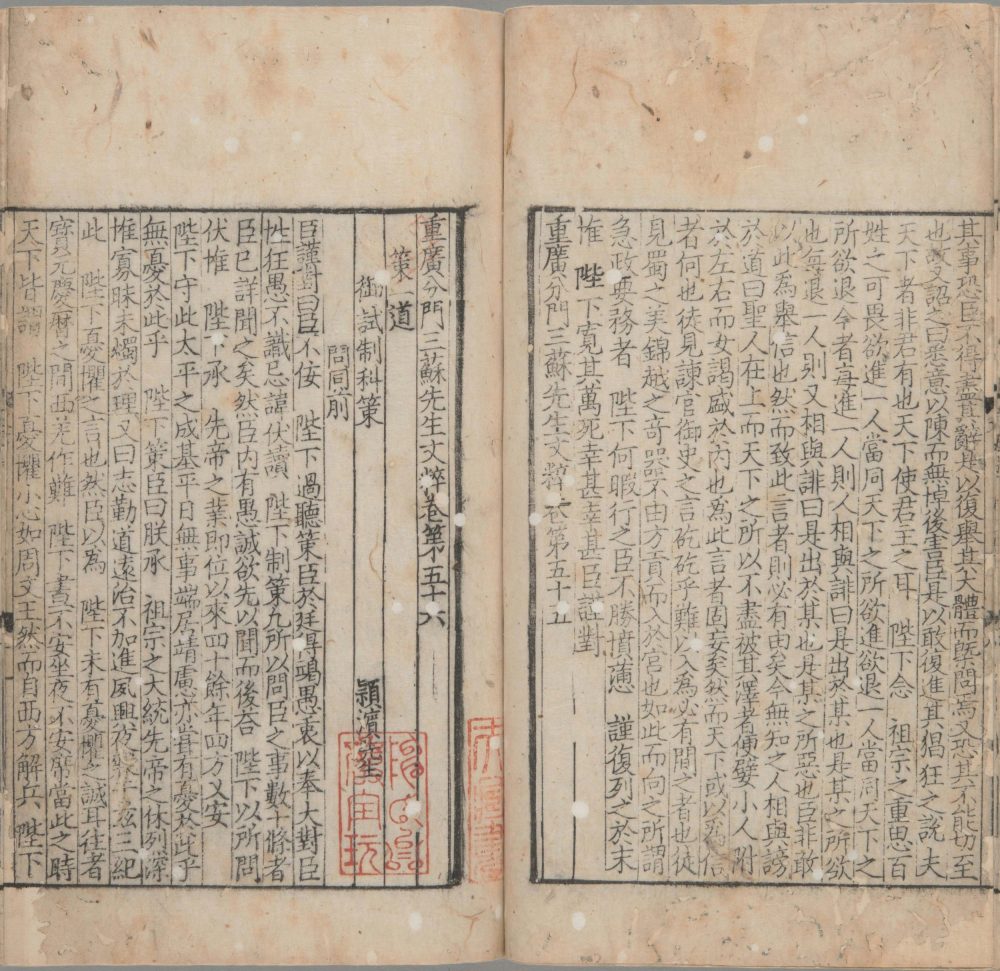 其事恐臣不得盡其辭是以復舉其大體而槩問焉又恐其不能切至
也故又詔之曰悉意以陳而無悼後害臣是以敢復進其猖狂之說夫
天下者非君有也天下使君主之耳　陛下念　祖宗之重思百
姓之可畏欲進一人當同天下之所欲進欲退一人當同天下之
所欲退今者每進一人則人相與誹曰是出於某也是某之所欲
也每退一人則又相與誹曰是出於某也是某之所惡也臣非敢
以此為舉信也然而致此言者則必有由矣今無知之人相與謗
於道曰聖人在上而天下之所以不盡被其澤者便嬖小人附
於左右而女謁盛於內也為此言者固妄矣然而天下或以為信
者何也徒見諫官御史之言矻矻乎難入以為必有間之者也徒
見蜀之美錦越之奇器不由方貢而入於宮也如此而向之所謂
急政要務者　陛下何暇行之臣不勝憤懣　謹復列之於末
惟　陛下寬其萬死幸甚幸甚臣謹對
重廣分門三蘇先生文粹卷第五十五
重廣分門三蘇先生文粹卷第五十六
策一道
御試制科策　潁濱先生
問同前
臣謹對曰臣不佞　陛下過聽策臣於廷得竭愚衷以奉大對臣
性狂愚不識忌諱伏讀　陛下制策凡所以問臣之事數十條者
臣已詳聞之矣然臣內有愚誠欲先以聞而後荅　陛下以所問
伏惟　陛下承　先帝之業即位以來四十餘年四方乂安
陛下守此太平之成基平日無事端居靖慮亦嘗有憂於此乎
無憂於此乎　陛下策臣曰朕承　祖宗之大統先帝之休烈深
惟寡昧未燭於理又曰志勤道遠治不加進夙興夜寐于茲三紀
此　陛下憂懼之言也然臣以為　陛下未有憂懼之誠耳往者
寶元慶曆之間西羌作難　陛下晝不安坐夜不安席當此之時
天下皆謂　陛下憂懼小心如周文王然而自西方解兵　陛下